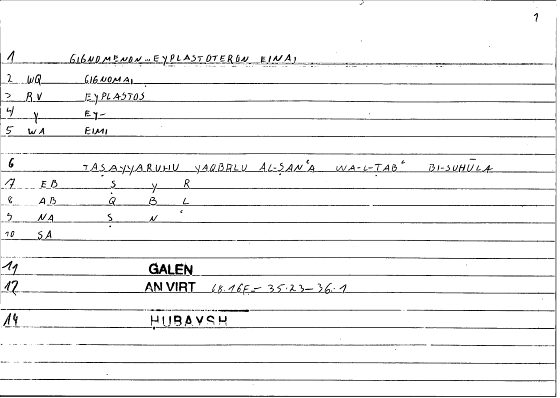 1
1 GIGNOMENON... EYPLASTOTERON EINAI
2 WQ GIGNOMAI
3 RV EYPLASTOS
4 Y EY-
5 WA EIMI
6 TAṢAYYARUHU YAQBALU AL-ṢANʿA WA-L-ṬABʿ BI-SUHŪLA
7 EB Ṣ Y R
8 AB Q B L
9 NA Ṣ N ʿ
10 SA
11 GALEN
12 AN VIRT 35.23-36.1
14 HUBAYSH